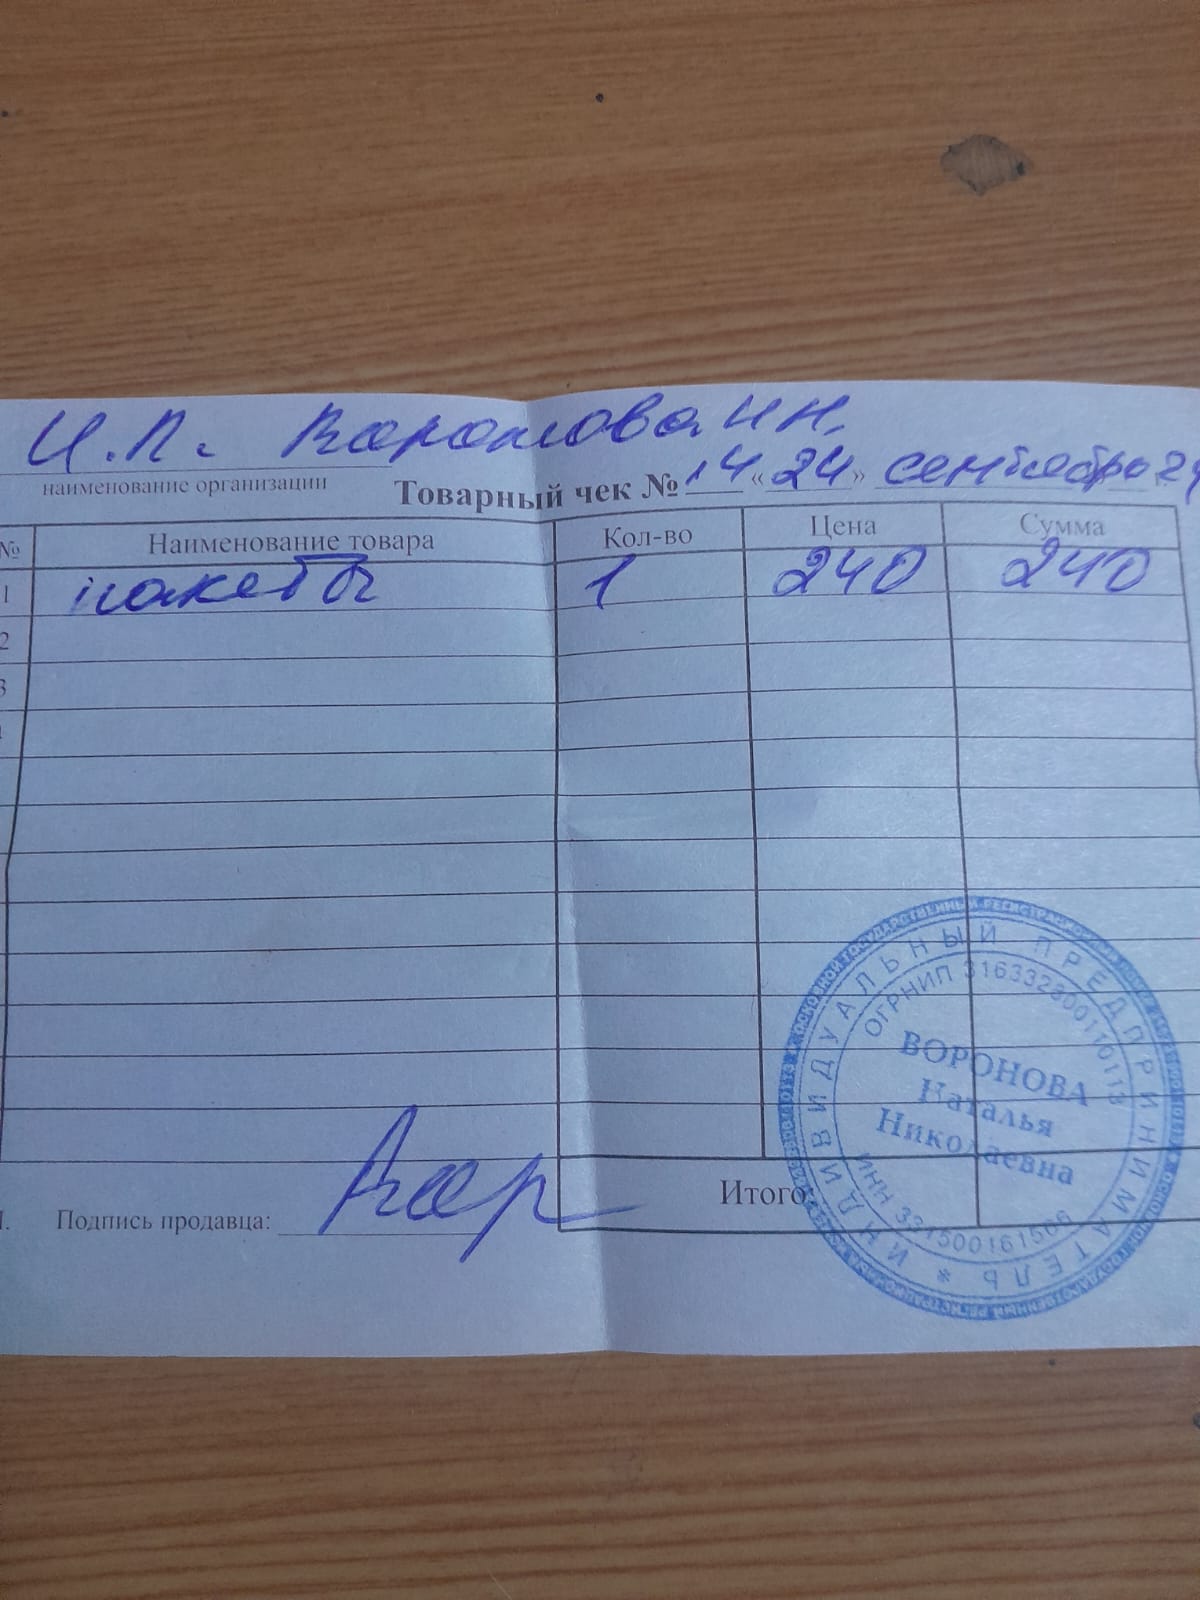 И.П. Воронова Н.Н.
наименование организации
Товарный чек № 14 «24» сентября 24
№ Наименование товара Кол-во Цена Сумма
1 пакеты 1 240 240
2
3
Итого
Подпись продавца: Вор
ИНДИВИДУАЛЬНЫЙ ПРЕДПРИНИМАТЕЛЬ *
ОГРНИП 316332800110113
ВОРОНОВА
Наталья
Николаевна
ИНН